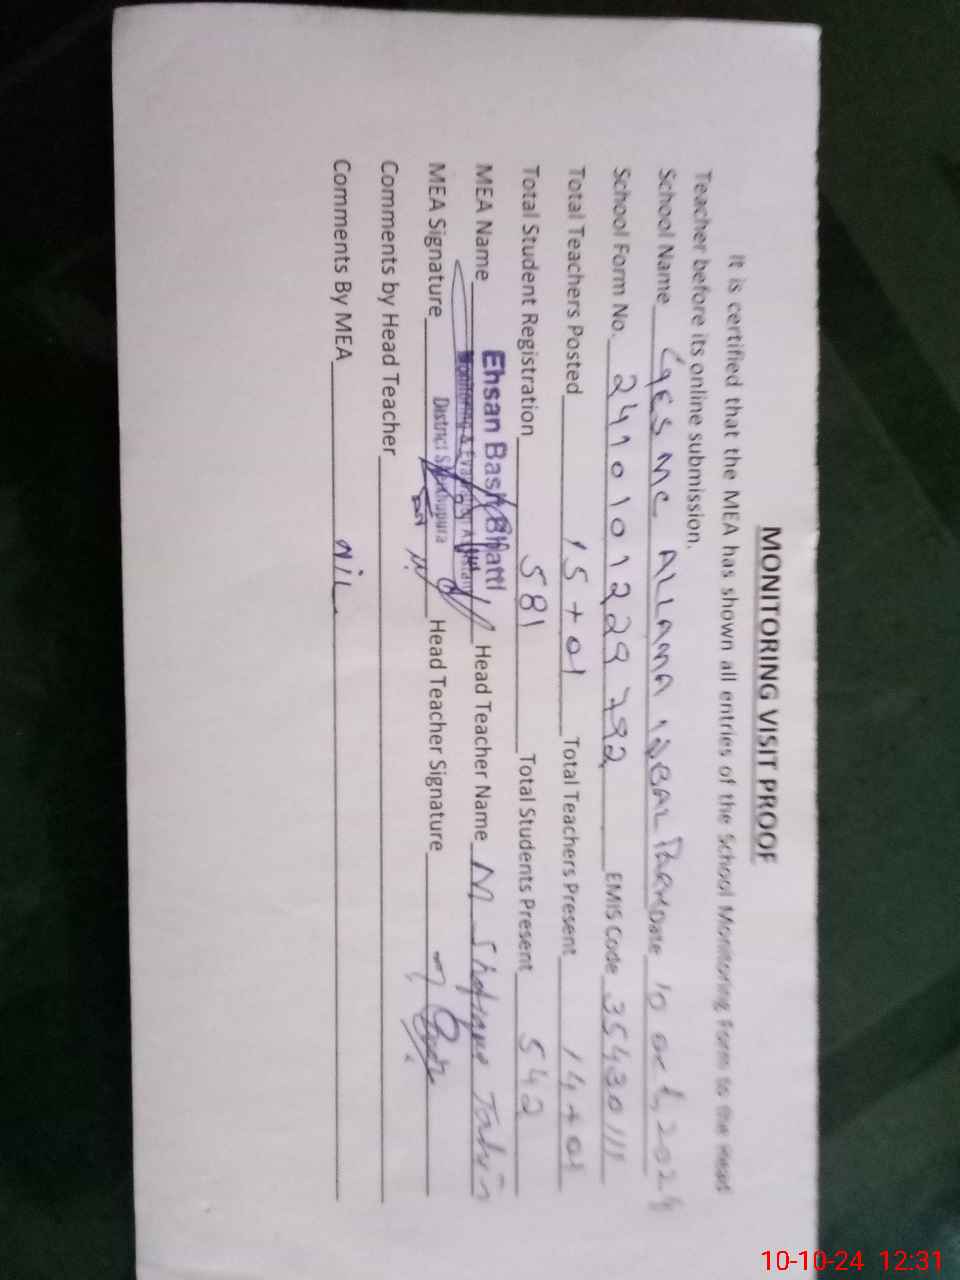 MONITORING VISIT PROOF
It is certified that the MEA has shown all entries of the School Monitoring Form to the Head
Teacher before its online submission.
School Name GES MC ALLAMA IQBAL PARK Date 10 oct, 2024
School Form No. 2410101229792 EMIS Code 35430111
Total Teachers Posted 15+01 Total Teachers Present 14+01
Total Student Registration 581 Total Students Present 542
MEA Name Ehsan Bashir Bhatti Head Teacher Name M
Monitoring & Evaluation Assistant
District Sheikhupura
MEA Signature Head Teacher Signature
Comments by Head Teacher
Comments By MEA NIL
10-10-24 12:31